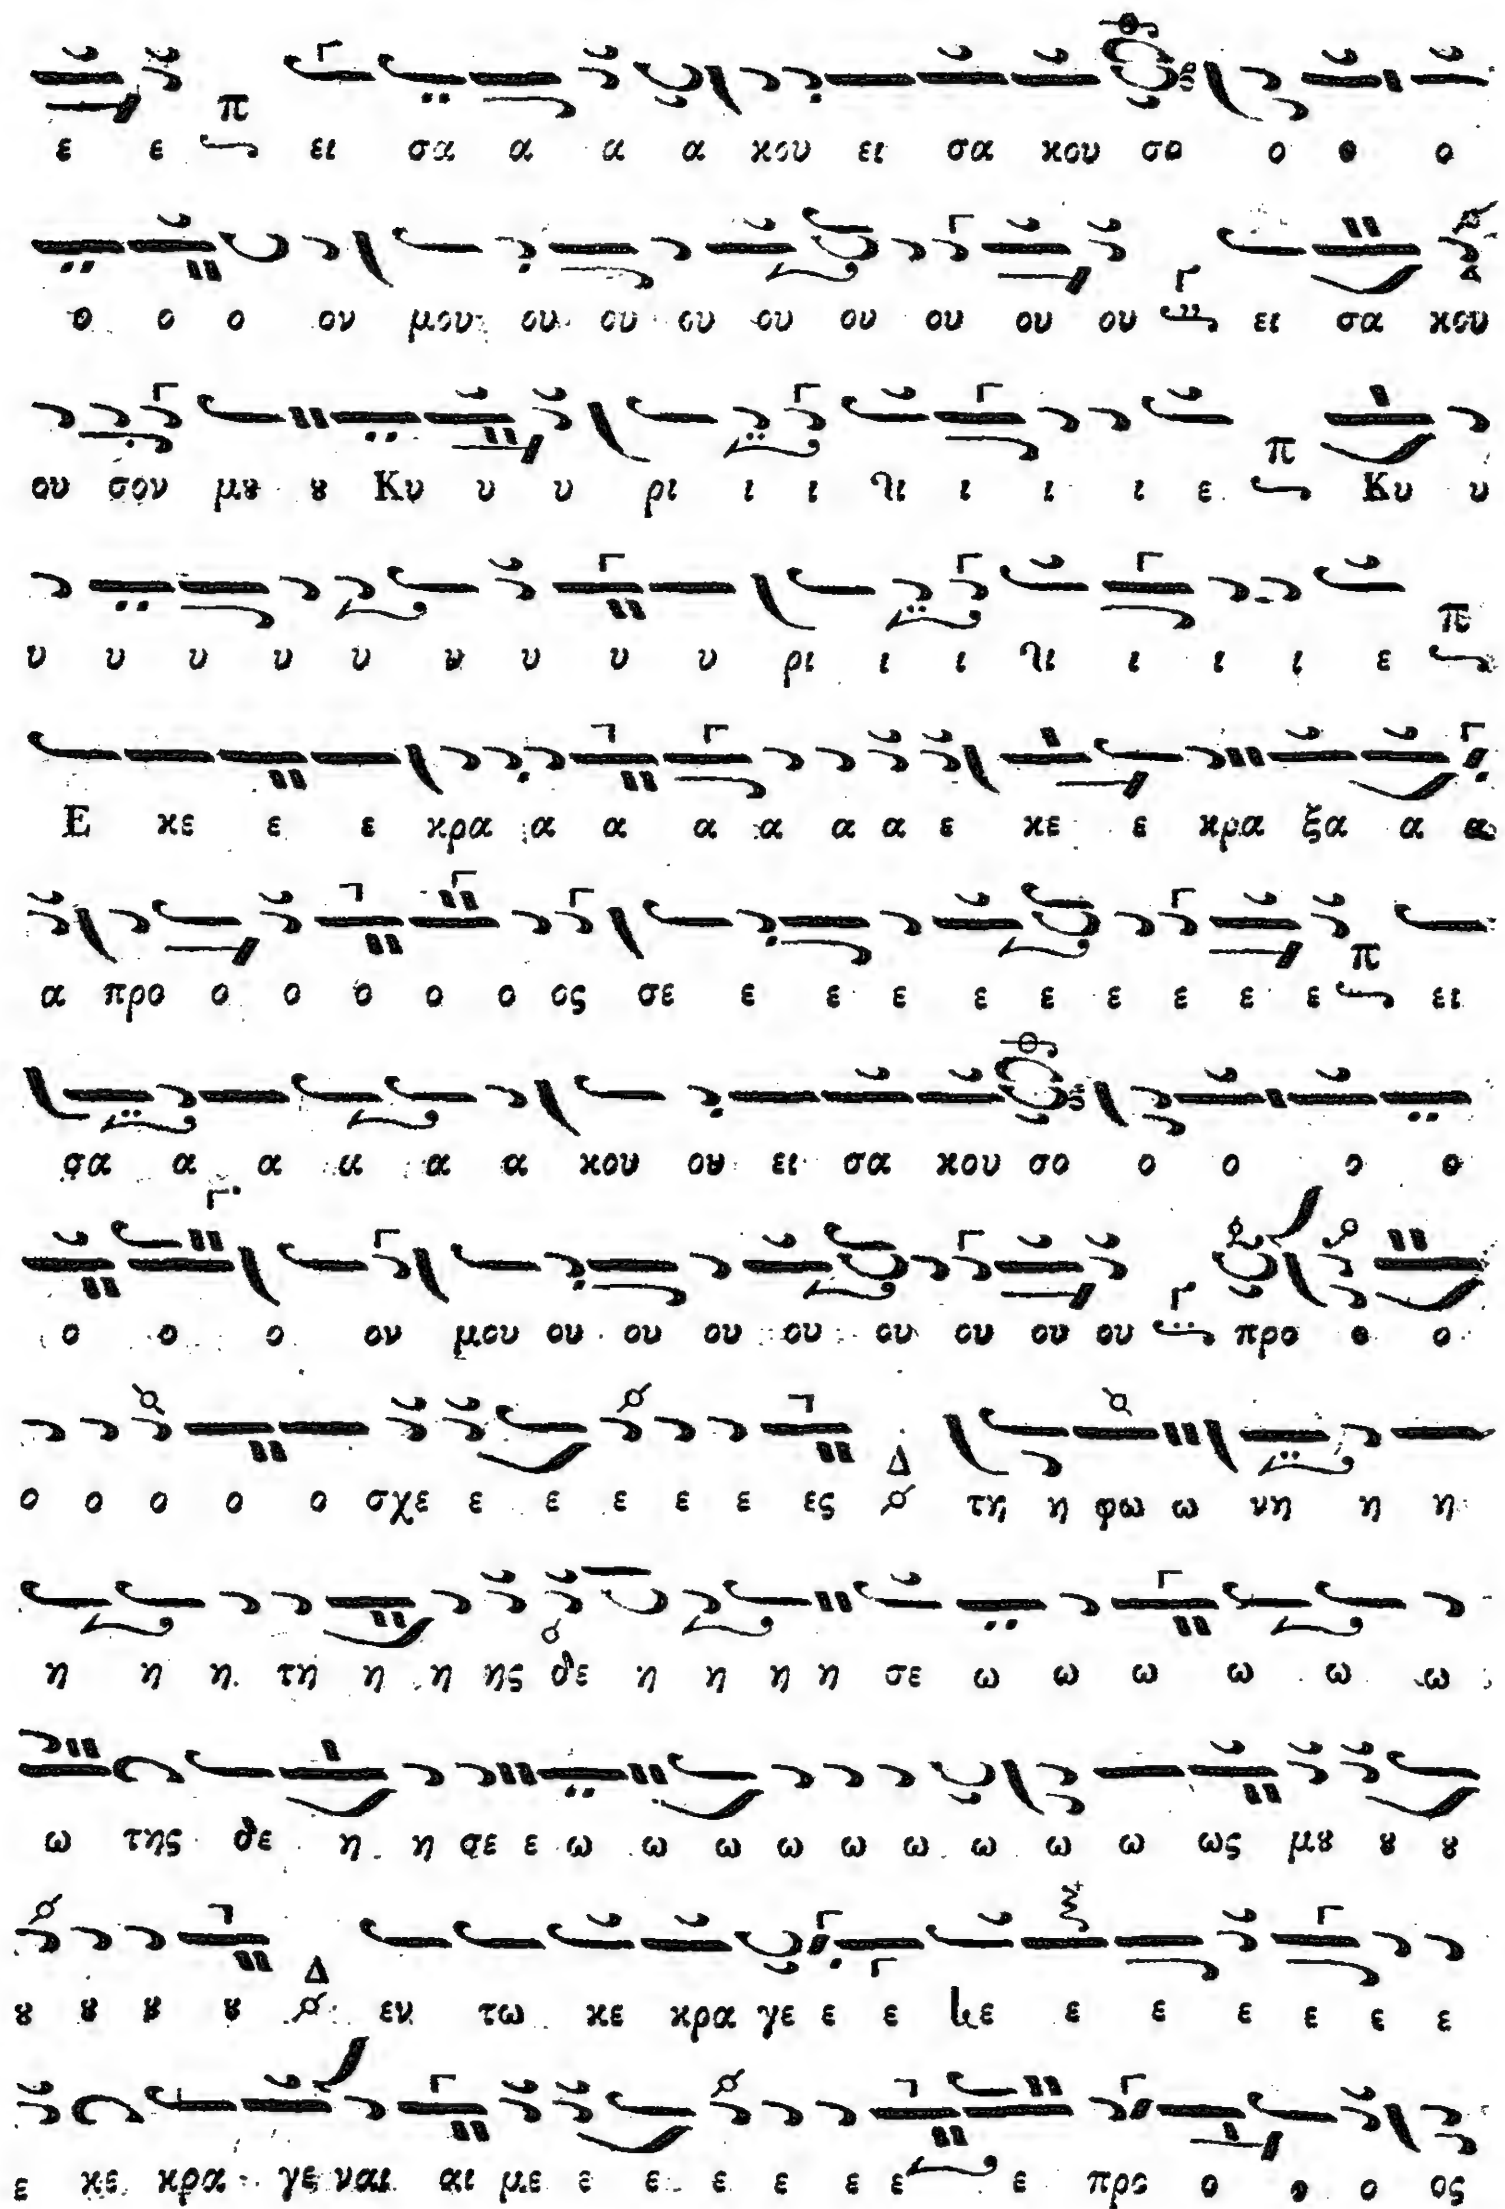 ε ε π ει σα α α α κου ει σα κου σο ο ο ο
ο ο ο ον μου ου ου ου ου ου ου ου ου ει σα κου
ου σον μȣ ȣ Κυ υ υ ρι ι ι ι ι ι ι ε π Κυ υ
υ υ υ υ υ υ υ υ υ ρι ι ι ι ι ι ι ε π
Ε κε ε ε κρα α α α α α α ε κε ε κρα ξα α α
α προ ο ο ο ο ο ος σε ε ε ε ε ε ε ε ε ε π ει
σα α α α α α κου ου ει σα κου σο ο ο ο ο
ο ο ο ον μου ου ου ου ου ου ου ου ου προ ο ο
ο ο ο ο ο σχε ε ε ε ε ε ες Δ τη η φω ω νη η η
η η η τη η η ης δε η η η η σε ω ω ω ω ω ω
ω της δε η η σε ε ω ω ω ω ω ω ω ω ω ως μȣ ȣ ȣ
ȣ ȣ ȣ ȣ Δ εν τω κε κρα γε ε ε ε ε ε ε ε ε
ε κε κρα γε ναι αι με ε ε ε ε ε ε ε προ ο ο ο ος